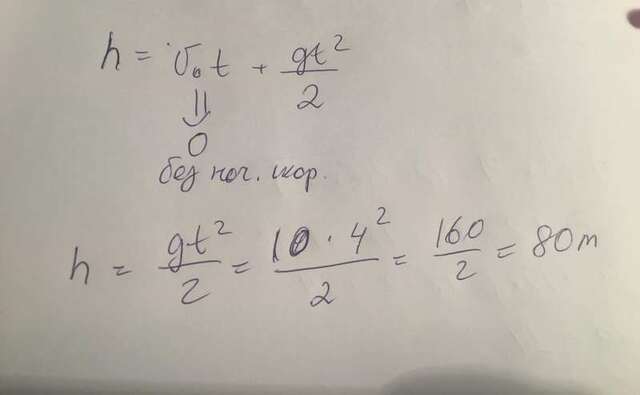 h = v₀t + gt²/2
⇓
0
без нач. скор.
h = gt²/2 = 10 · 4²/2 = 160/2 = 80m